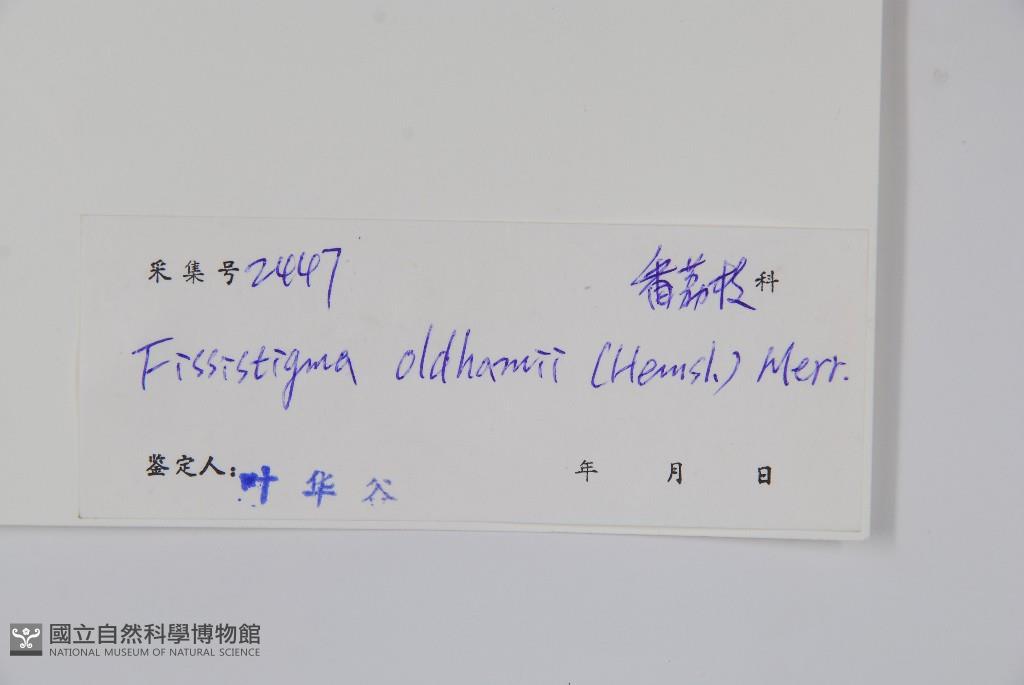 采集号 2447 番荔枝科
Fissistigma oldhamii (Hemsl.) Merr.
鉴定人: 叶华谷 年 月 日
國立自然科學博物館
NATIONAL MUSEUM OF NATURAL SCIENCE